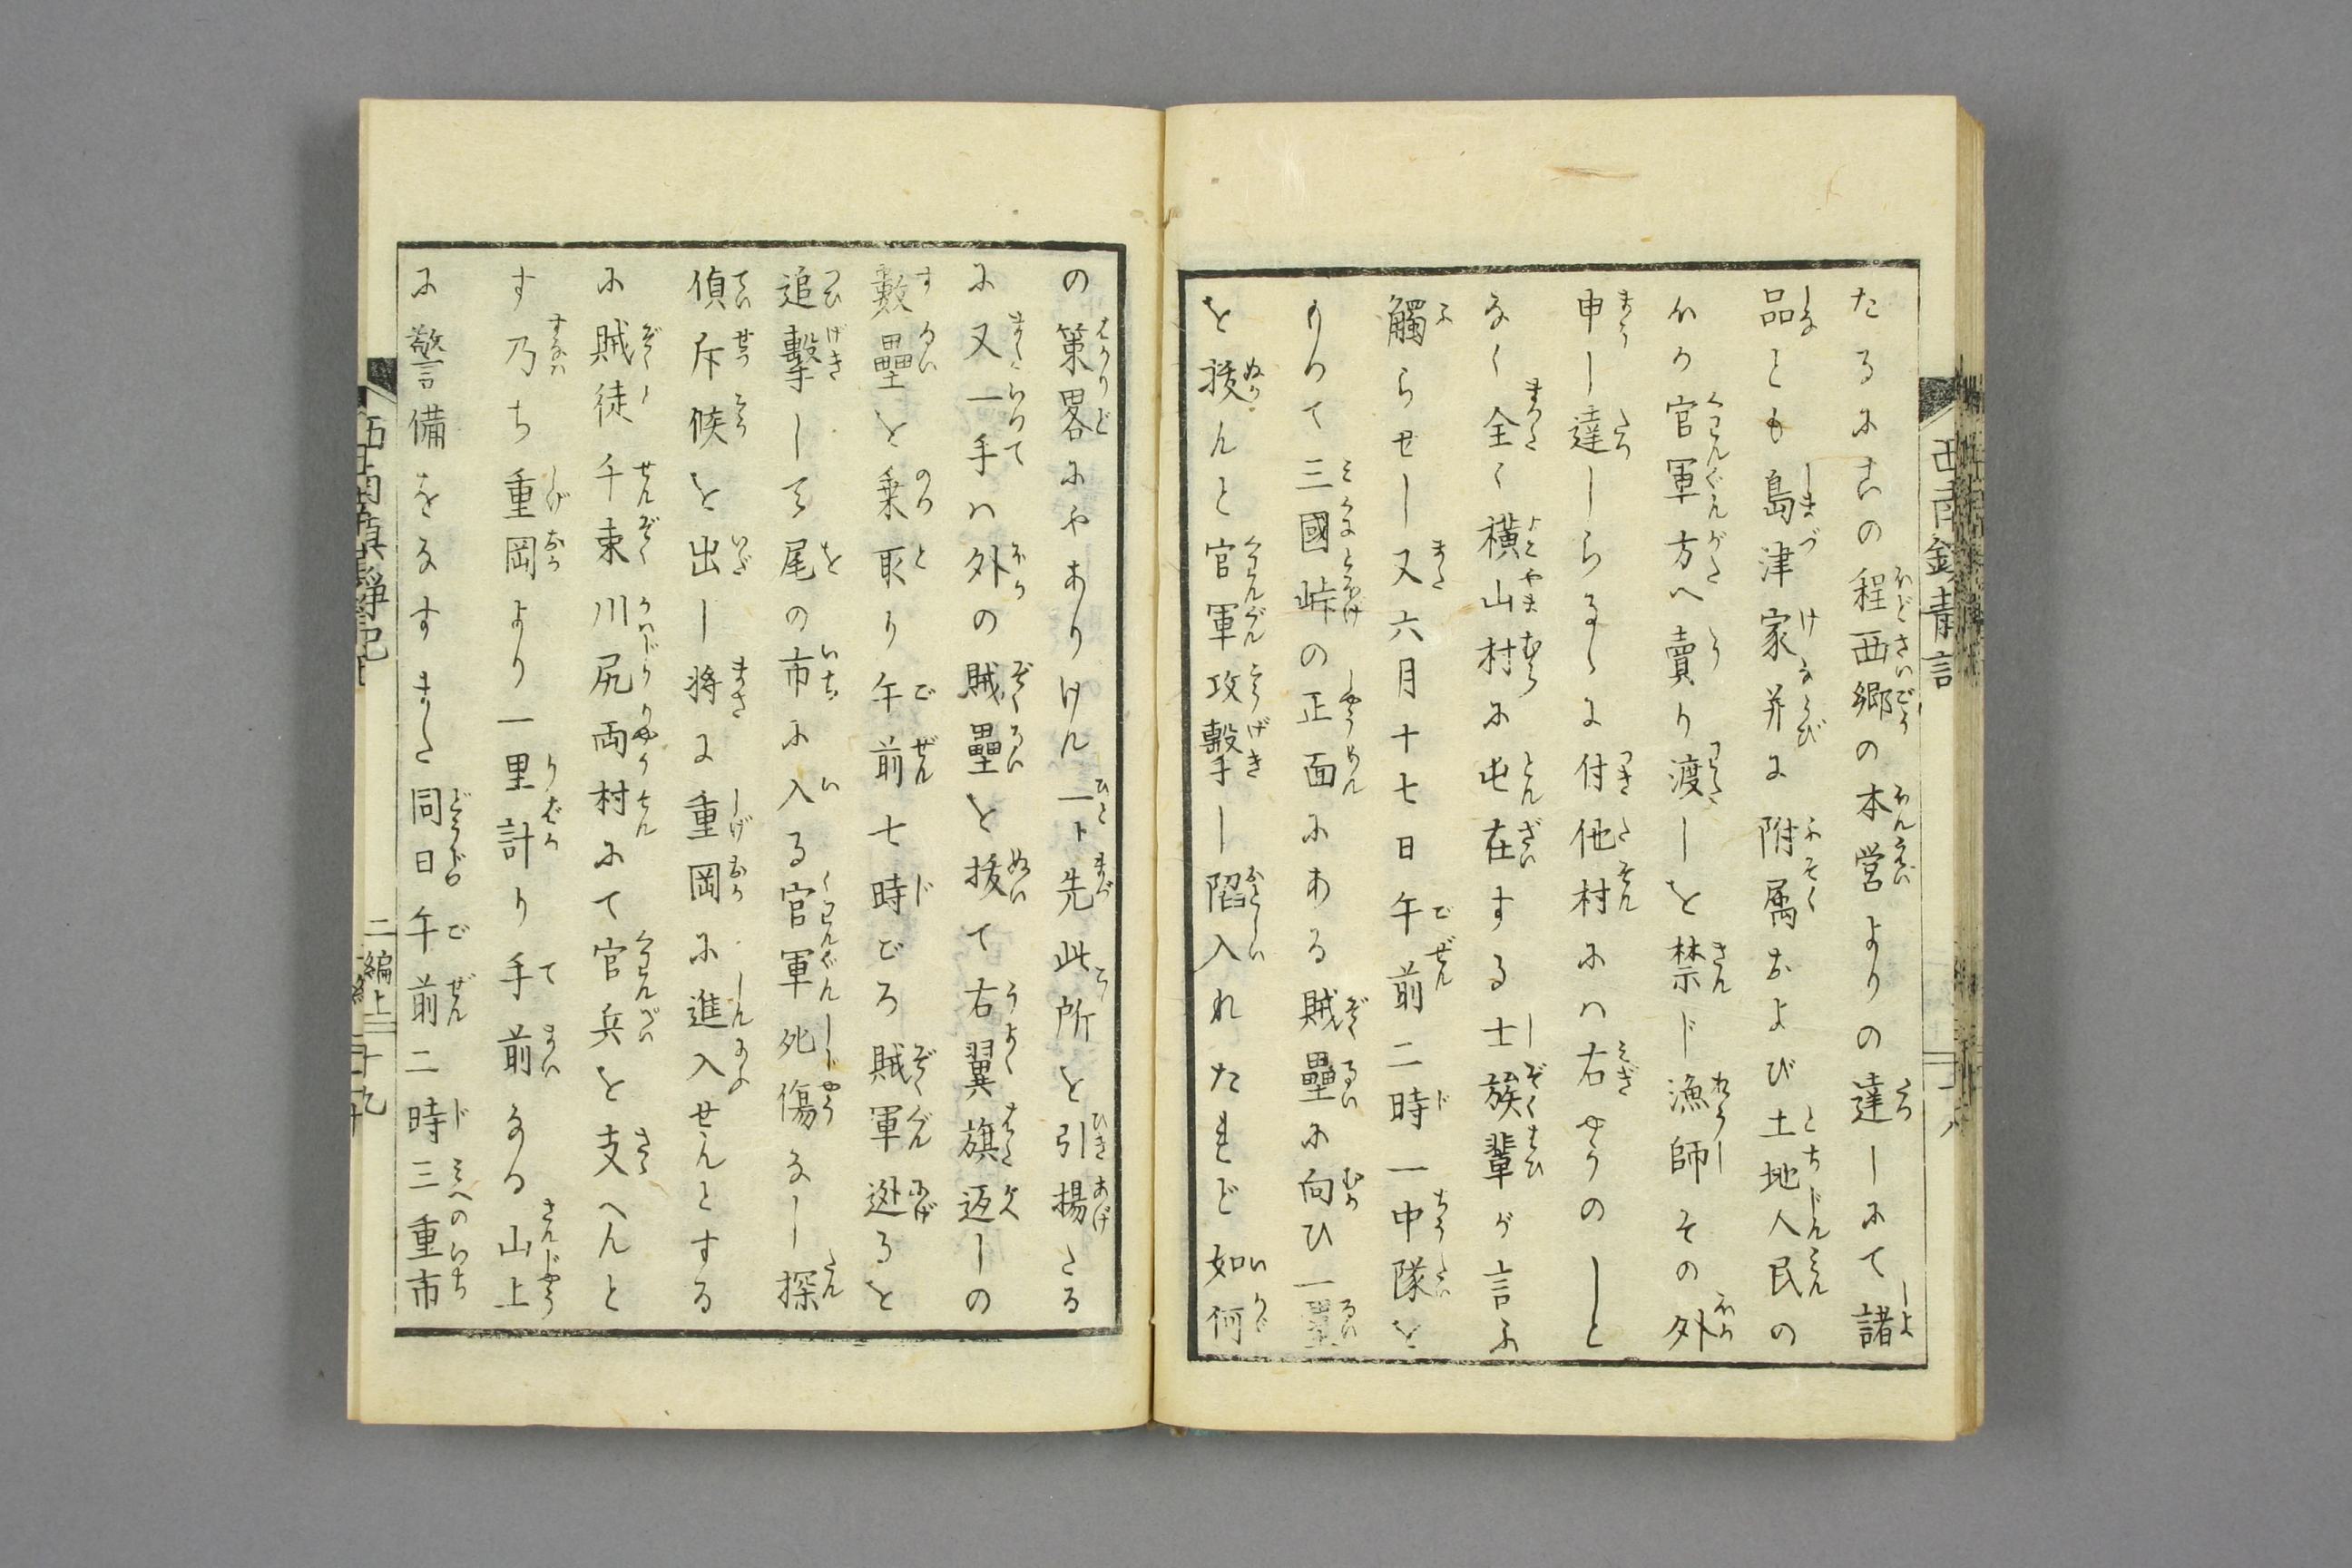 たるに此の程西郷の本営よりの達しにて諸
品とも島津家并に附属および土地人民の
外の官軍方へ賣り渡しを禁ド漁師その外
申し達しらるゝに付他村にハ右やうのしと
なく全く横山村に屯在する士族輩が言ふ
觸らせし又六月十七日午前二時一中隊を
もつて三國峠の正面にある賊壘に向ひ一壘
を拔んと官軍攻撃し陷入れたれど如何
の策畧にやありけん一ト先此所を引揚たる
に又一手ハ外の賊壘を拔て右翼旗返しの
數壘を乗取り午前七時ごろ賊軍逃るを
追撃して尾の市に入る官軍死傷なし探
偵斥候を出し将に重岡に進入せんとする
に賊徒千束川尻両村にて官兵を支へんと
す乃ち重岡より一里計り手前なる山上
に警備をなすまた同日午前二時三重市
二編上
十九